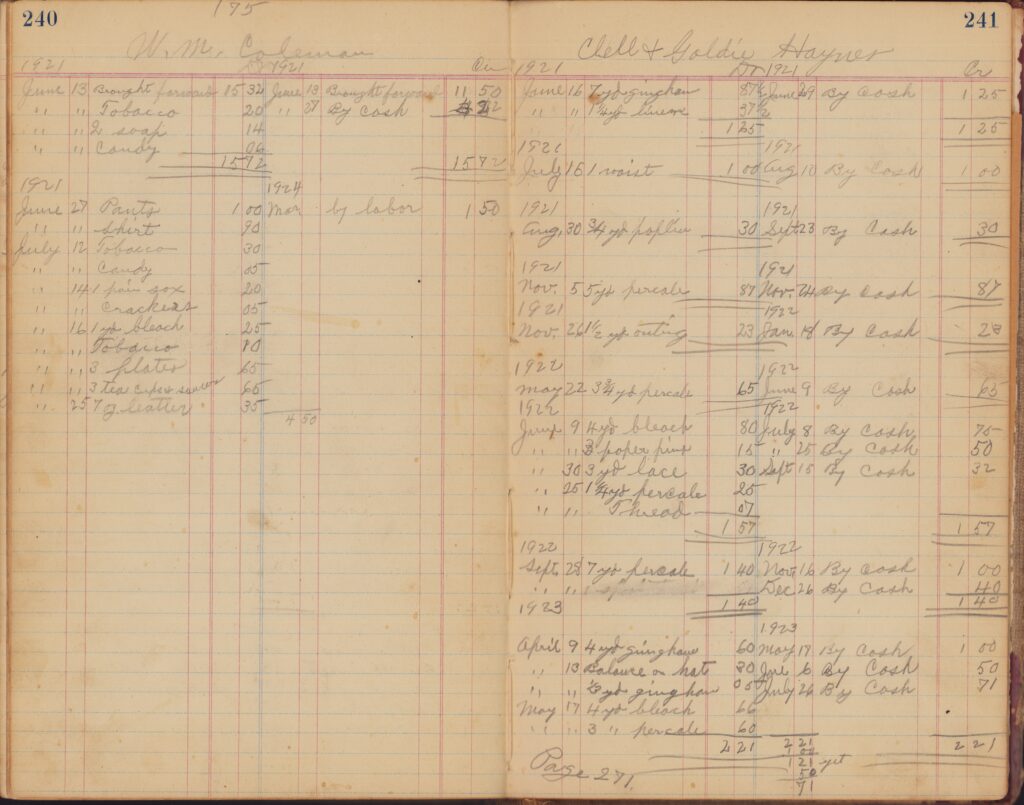 240
175
W. M. Coleman
1921 Dr 1921 Cr
June 13 Brought forward 15 32 June 13 Brought forward 11 50
" " Tobacco 20 " 27 By Cash 4 22
" " 2 soap 14
" " Candy 06
15 72 15 72
1921 1924
June 27 Pants 1 00 Mar by labor 1 50
" " Shirt 90
July 12 Tobacco 30
" " Candy 05
" 14 1 pair sox 20
" " Crackers 05
" 16 1 yd bleach 25
" " Tobacco 10
" " 3 plates 65
" " 3 tea cups & 65
" 25 7 leather 35
4 50
241
Clell & Goldie Haynes
1921 Dr 1921 Cr
June 16 7 yd gingham 87½ June 29 By Cash 1 25
" " 1¼ yd linen 37½
1 25 1 25
1921 1921
July 16 1 waist 1 00 Aug 10 By Cash 1 00
1921 1921
Aug. 30 ¾ yd poplin 30 Sept 23 By Cash 30
1921 1921
Nov. 5 5 yd percale 87 Nov. 24 By Cash 87
1921 1922
Nov. 26 1½ yd outing 23 Jan. 18 By Cash 23
1922 1922
May 22 3¾ yd percale 65 June 9 By Cash 65
1922 1922
June 9 4 yd bleach 80 July 8 By Cash 75
" " 3 paper pins 15 " 25 By Cash 50
" 30 3 yd lace 30 Sept 15 By Cash 32
" 25 1¼ yd percale 25
" " Thread 07
1 57 1 57
1922 1922
Sept. 28 7 yd percale 1 40 Nov. 16 By Cash 1 00
" " Dec 26 By Cash 40
1923 1 40 1 40
1923
April 9 4 yd gingham 60 May 17 By Cash 1 00
" 13 Balance on hat 30 June 6 By Cash 50
" " ⅓ yd gingham 05 July 26 By Cash 71
May 17 4 yd bleach 66
" " 3 " percale 60
2 21 2 21 2 21
1 00
1 21 yet
Page 271 50
71